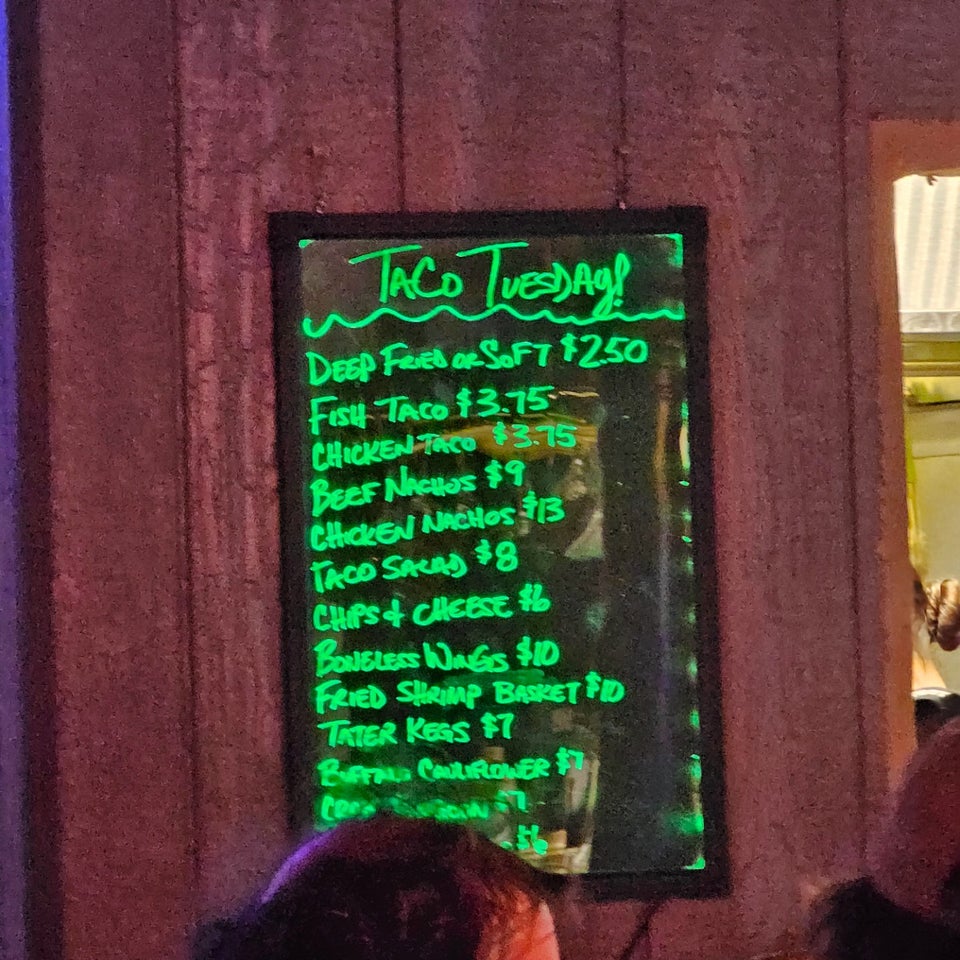 TACO TUESDAY!
DEEP FRIED OR SOFT $2.50
FISH TACO $3.75
CHICKEN TACO $3.75
BEEF NACHOS $9
CHICKEN NACHOS $13
TACO SALAD $8
CHIPS & CHEESE $6
BONELESS WINGS $10
FRIED SHRIMP BASKET $10
TATER KEGS $7
BUFFALO CAULIFLOWER $7
$7
$6